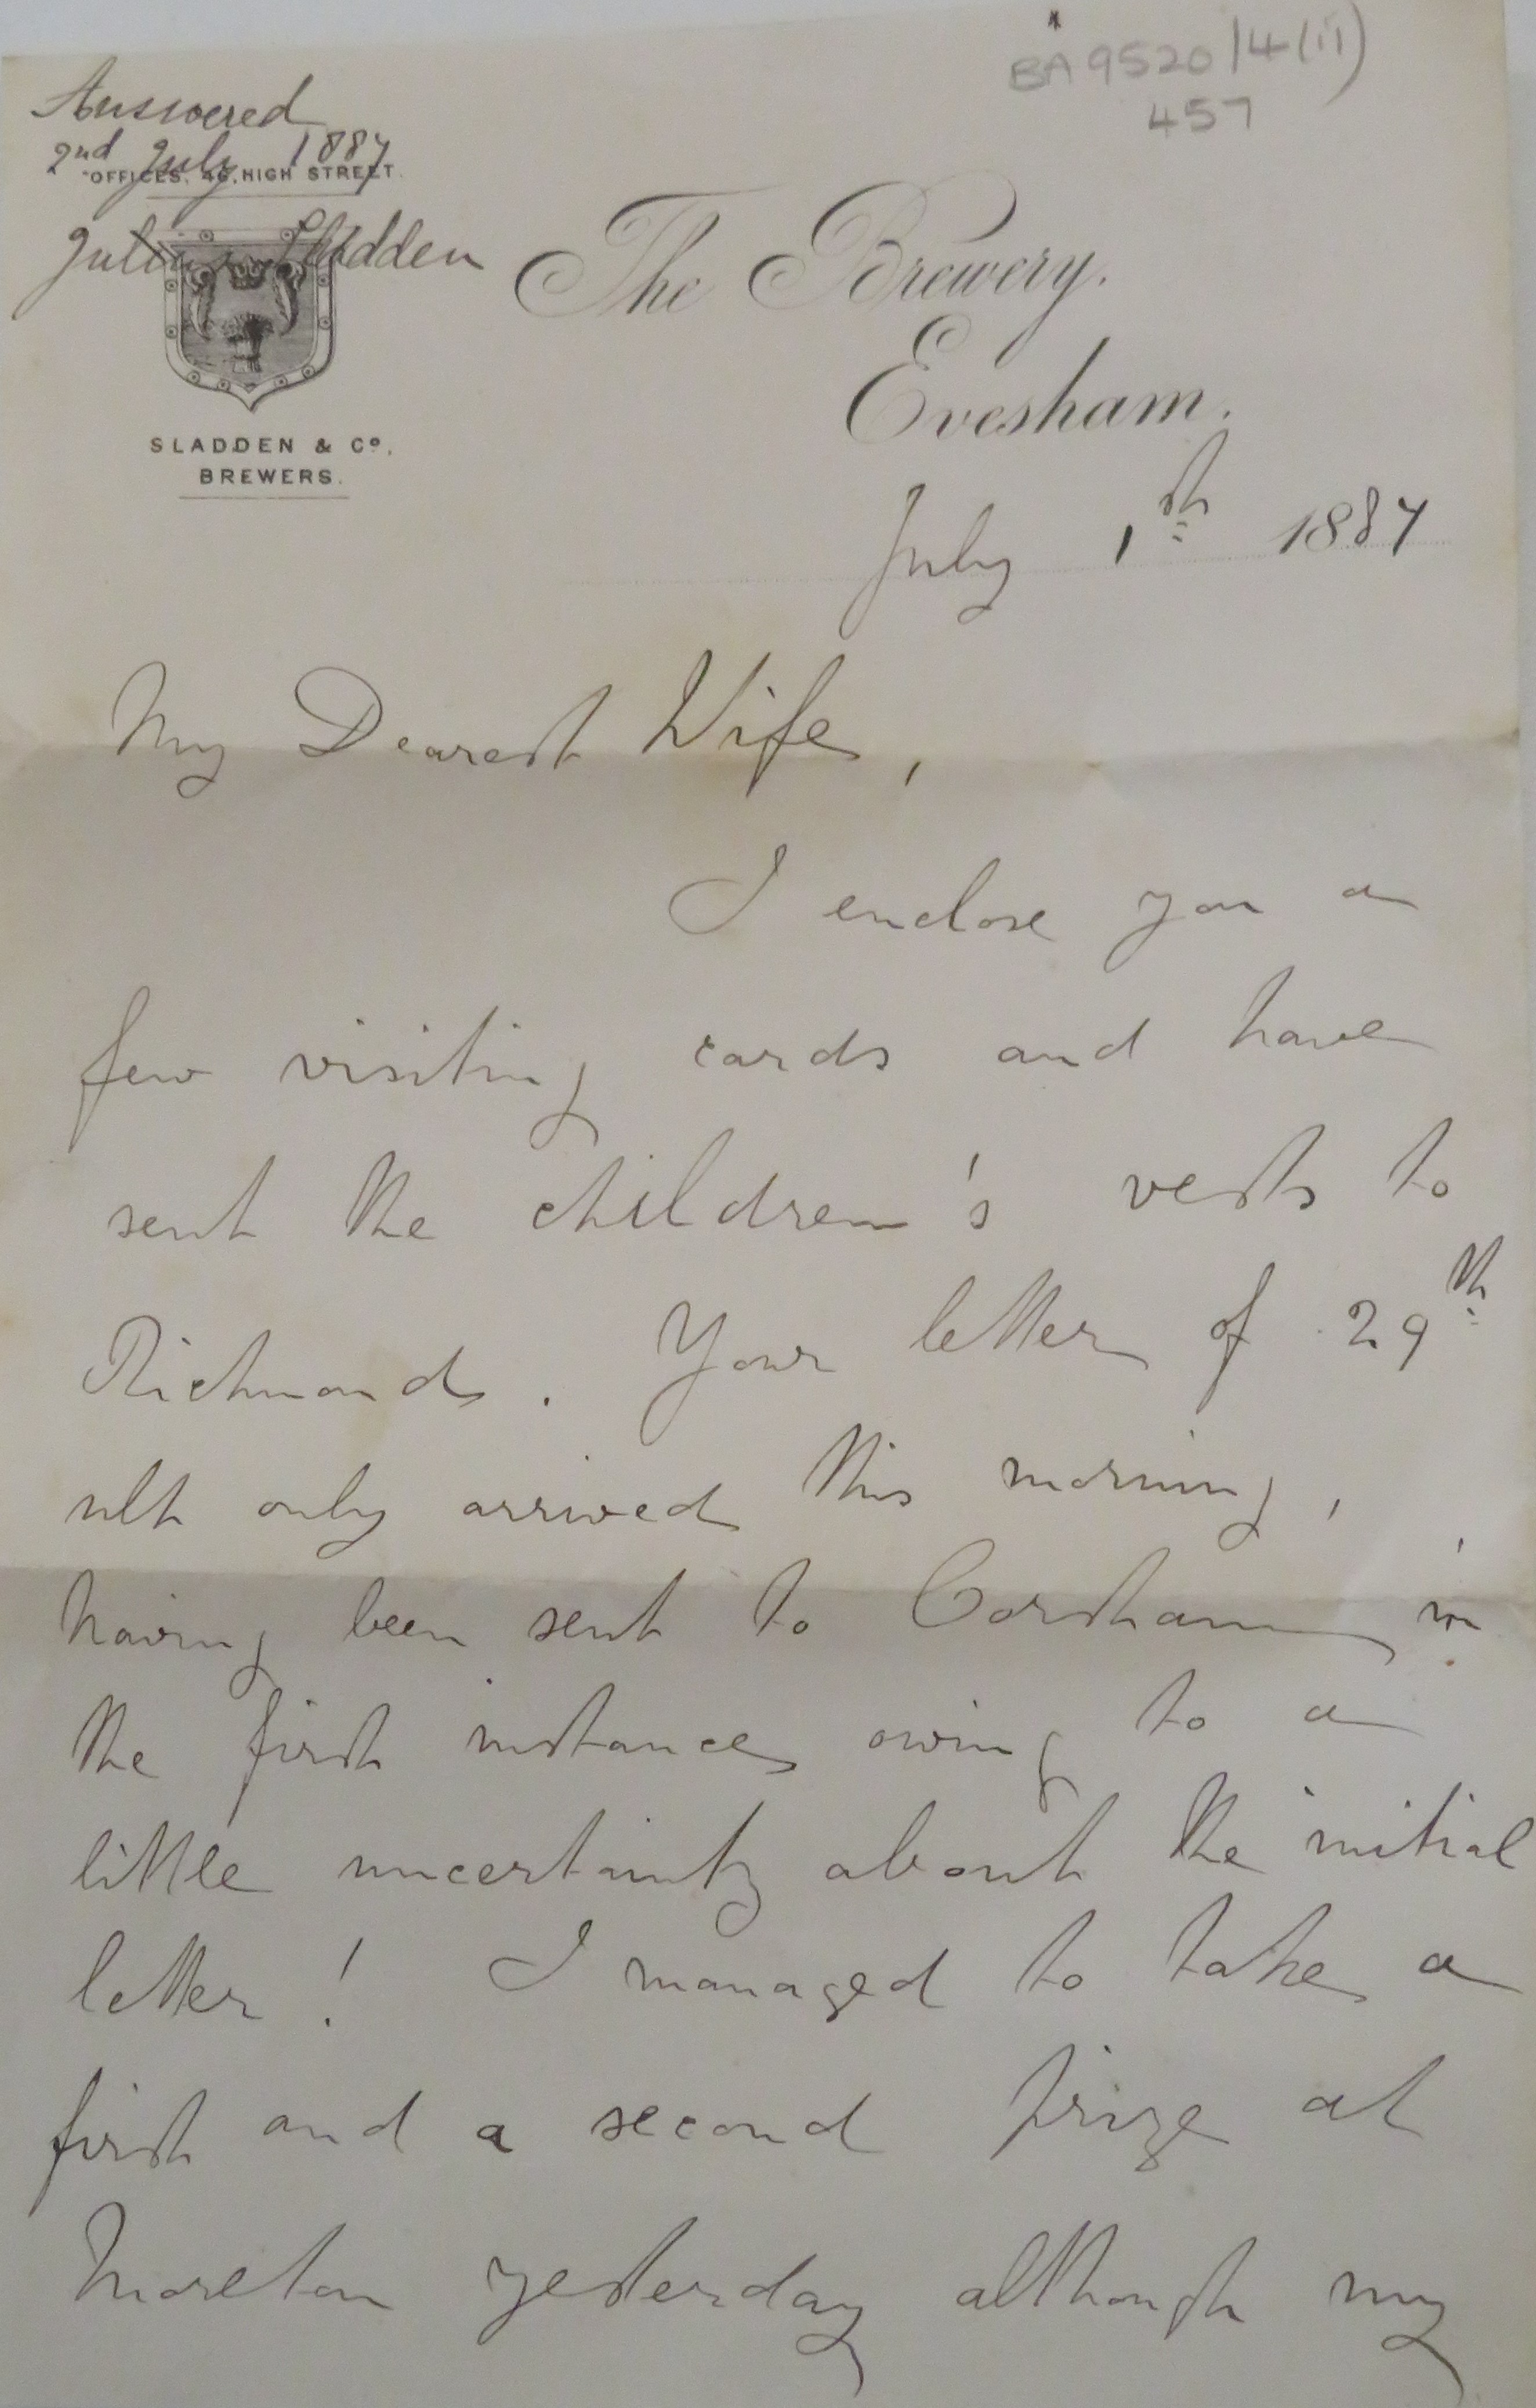 BA 9520/4(ii)
457
Answered
2nd July 1887
OFFICES, 46, HIGH STREET.
Julius Sladden
SLADDEN & Co.
BREWERS.
The Brewery.
Evesham.
July 1st 1887
My Dearest Wife,
I enclose you a
few visiting cards and have
sent the children's vests to
Richmond. Your letter of 29th
ult only arrived this morning,
having been sent to Corsham in
the first instance owing to a
little uncertainty about the initial
letter! I managed to take a
first and a second prize at
Moreton yesterday although my